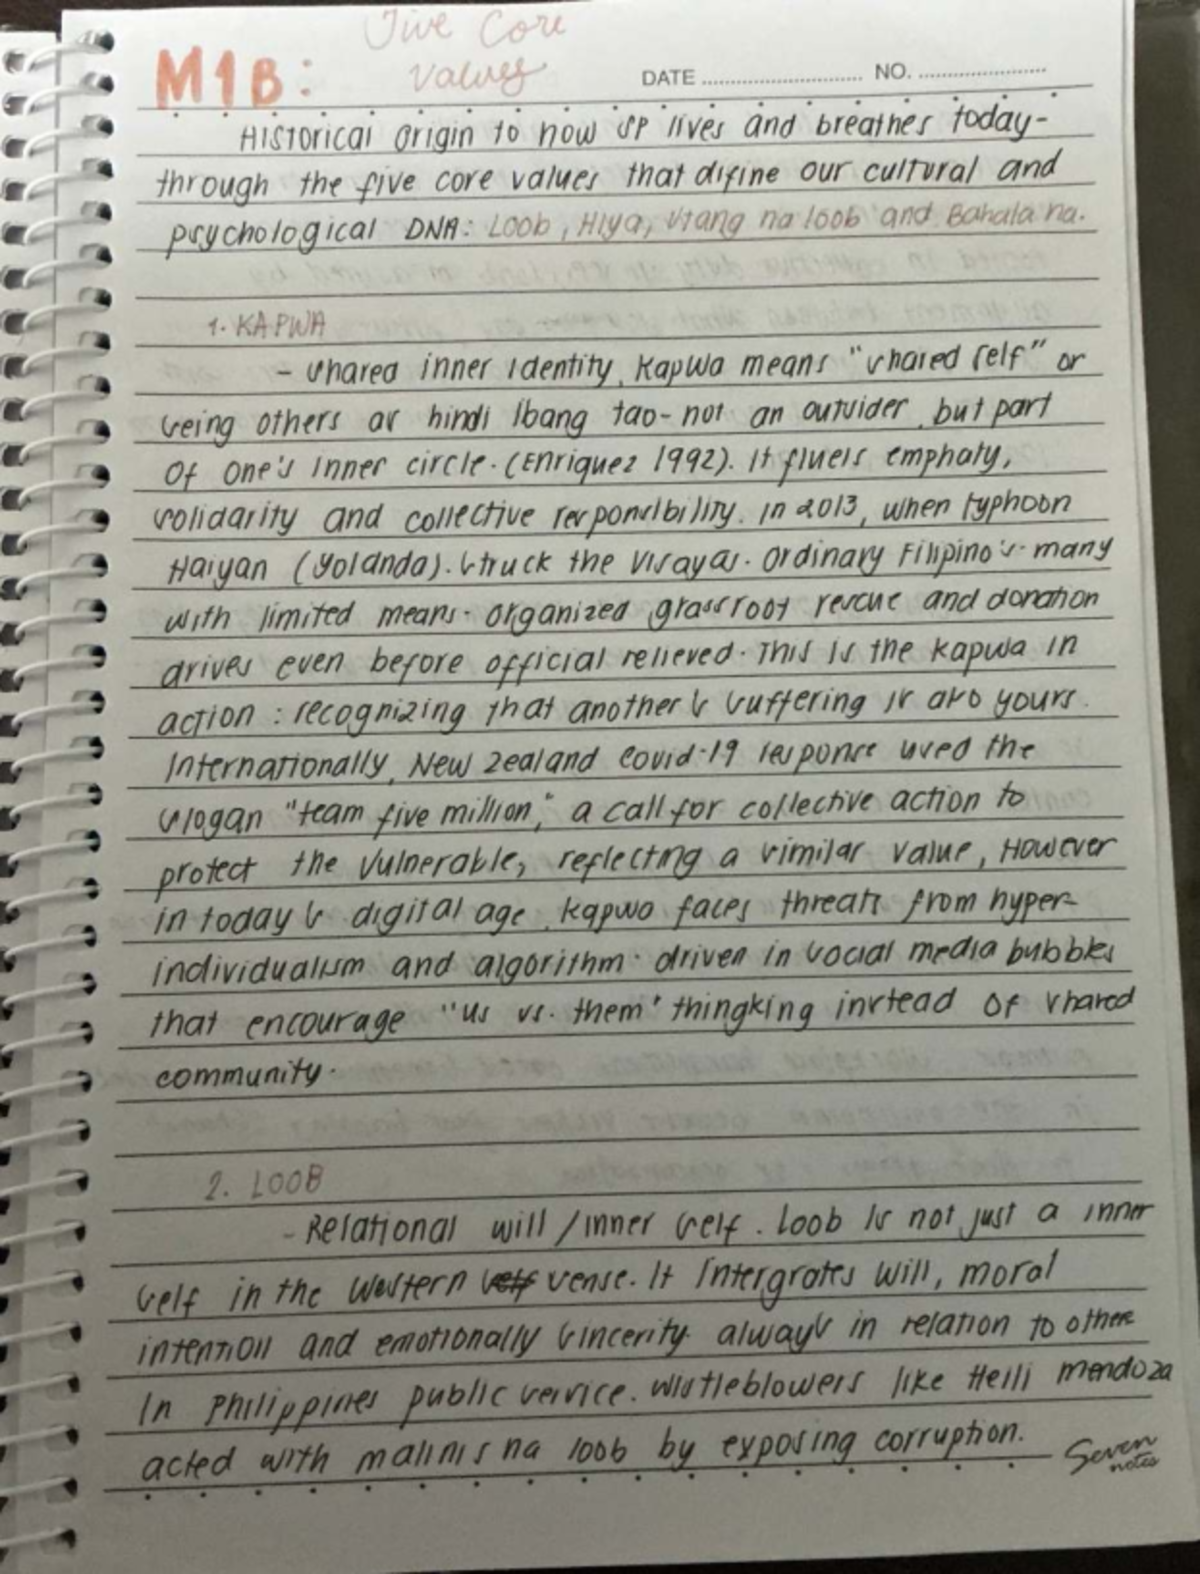 Five Core
Values
M1B:
DATE ........................ NO. ........................
Historical origin to how SP lives and breathes today-
through the five core values that difine our cultural and
psychological DNA: Loob, Hiya, Utang na loob and Bahala na.
1. KAPWA
- shared inner identity, Kapwa means "shared self" or
seing others as hindi Ibang tao- not an outsider, but part
Of one's inner circle. (Enriquez 1992). It fluels emphaty,
solidarity and collective responsibility. In 2013, when typhoon
Haiyan (Yolanda). struck the Visayas. Ordinary Filipino's- many
with limited means- organized grassroot rescue and donation
drives even before official relieved. This is the kapwa in
action : recognizing that another's suffering is also yours.
Internationally, New Zealand Covid-19 response used the
slogan "team five million," a call for collective action to
protect the vulnerable, reflecting a similar value, However
in today's digital age, kapwa faces threats from hyper-
individualism and algorithm- driven in social media bubbles
that encourage "us vs. them" thingking instead of shared
community.
2. LOOB
- Relational will / inner self. Loob Is not just a inner
self in the Western self sense. It Intergrates will, moral
intention and emotionally sincerity. always in relation to other
In Philippines public service. Wistleblowers like Heili mendoza
acted with malinis na loob by exposing corruption.
Seven
notes